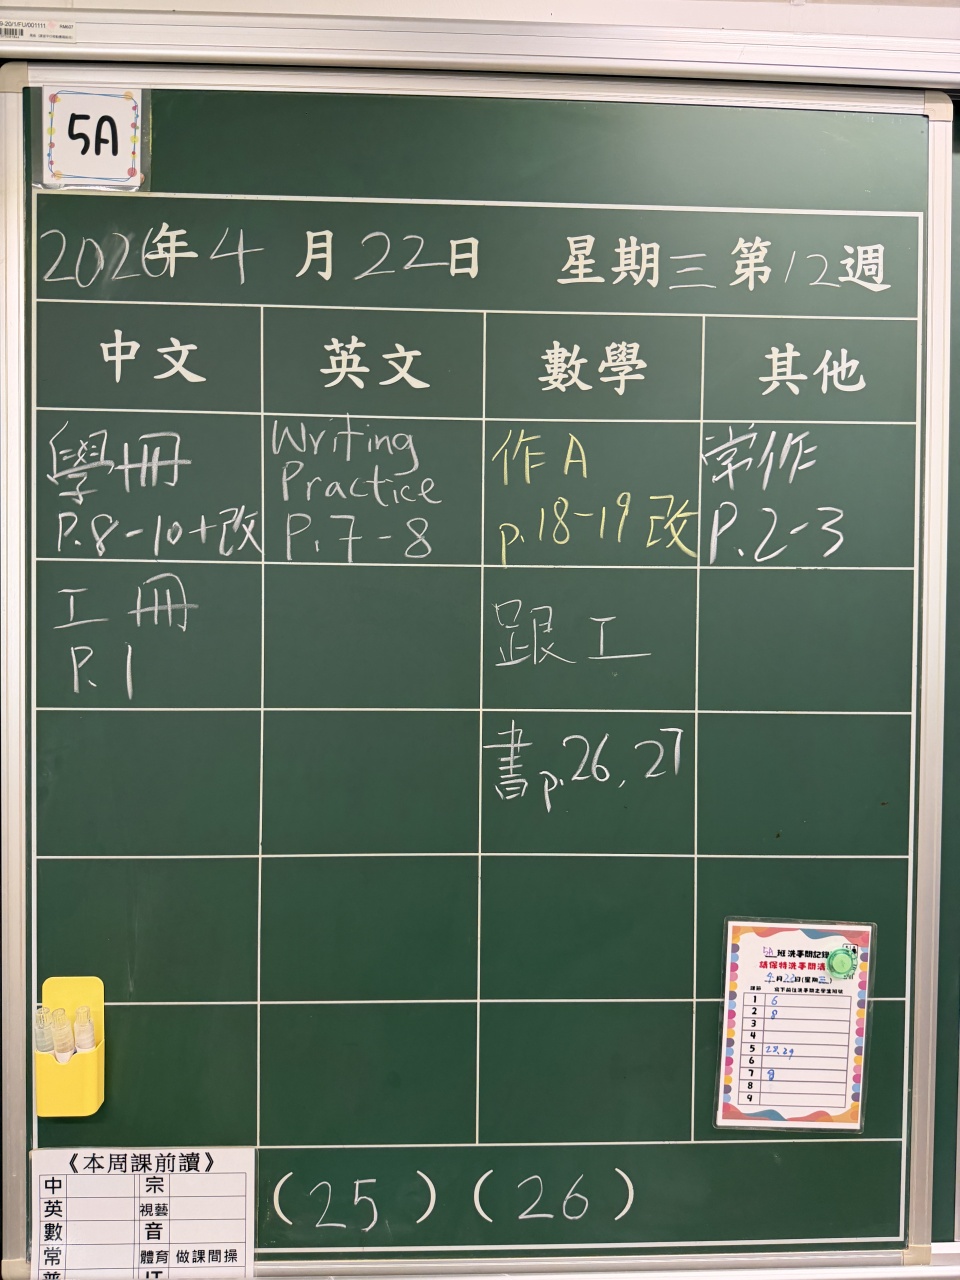 5A
2026年4月22日 星期三第12週
中文 英文 數學 其他
學冊
P.8-10+改
Writing
Practice
P.7-8
作A
p.18-19改
常作
P.2-3
工冊
P.1
跟工
書p.26,27
5A班洗手間記錄
請保持洗手間清
4月22日(星期三)
1 6
2 8
3
4
5 28,29
6
7 8
8
9
《本周課前讀》
中 宗
英 視藝
數 音
常 體育 做課間操
普 IT
(25)(26)